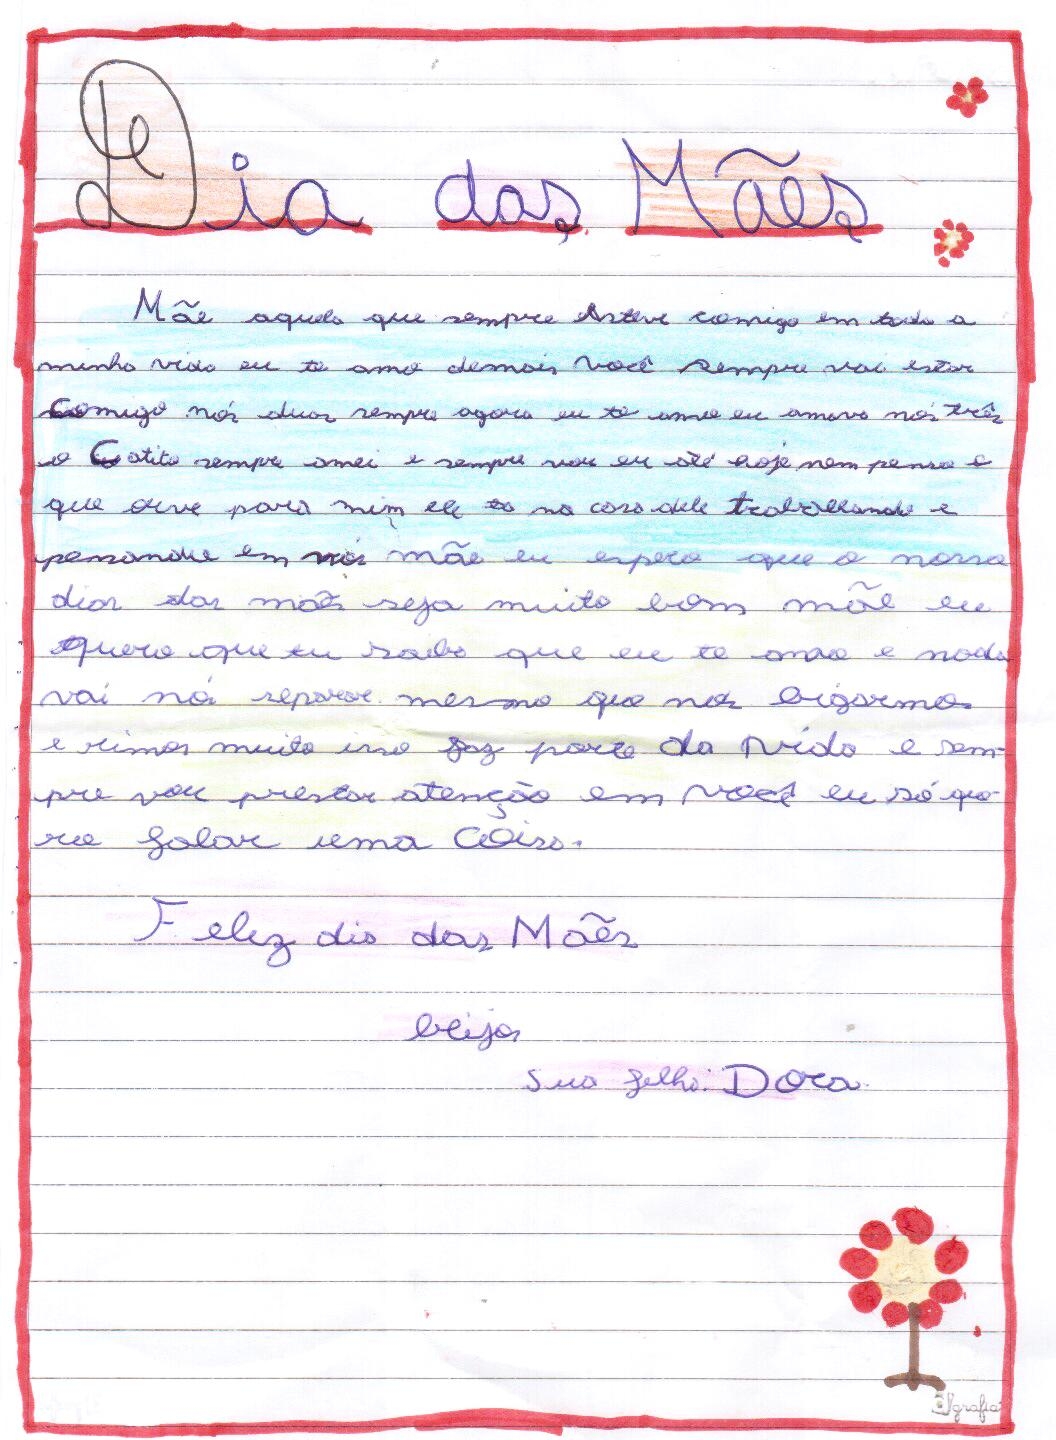 Dia das Mães
Mãe aquela que sempre esteve comigo em toda a
minha vida eu te amo demais você sempre vai estar
comigo nós duas sempre agora eu te amo eu amava nós três
o Catito sempre amei e sempre vou eu até hoje nem penso o
que deve para mim ele ta na casa dele trabalhando e
pensando em nós mãe eu espero que o nosso
dias das mães seja muito bom mãe eu
quero que tu saiba que eu te amo e nada
vai nós separar mesmo que nos brigarmos
e rimos muito isso faz parte da vida e sem-
pre vou prestar atenção em você eu só que-
ro falar uma coisa.
Feliz dia das Mães
beijos
Sua filha: Dora
grafia